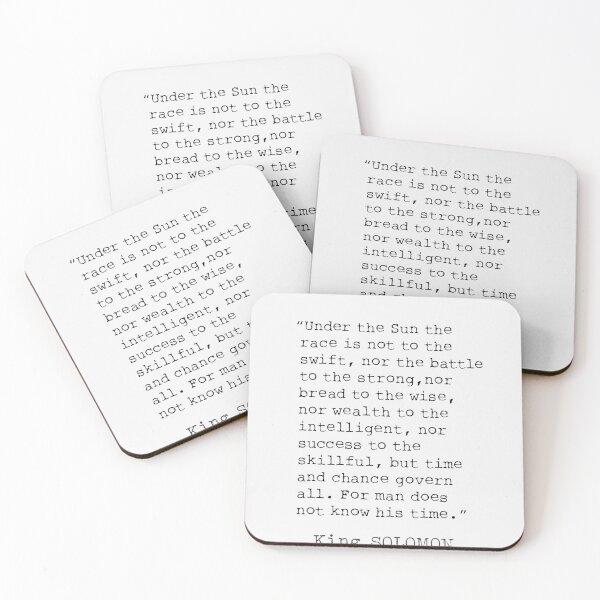 “Under the Sun the
race is not to the
swift, nor the battle
to the strong,nor
bread to the wise,
nor wealth to the
nor
“Under the Sun the
race is not to the
swift, nor the battle
to the strong,nor
bread to the wise,
nor wealth to the
intelligent, nor
success to the
skillful, but time
and chance govern
“Under the Sun the
race is not to the
swift, nor the battle
to the strong,nor
bread to the wise,
nor wealth to the
intelligent, nor
success to the
skillful, but
and chance govern
all. For man does
not know his
King
“Under the Sun the
race is not to the
swift, nor the battle
to the strong,nor
bread to the wise,
nor wealth to the
intelligent, nor
success to the
skillful, but time
and chance govern
all. For man does
not know his time.”
King SOLOMON